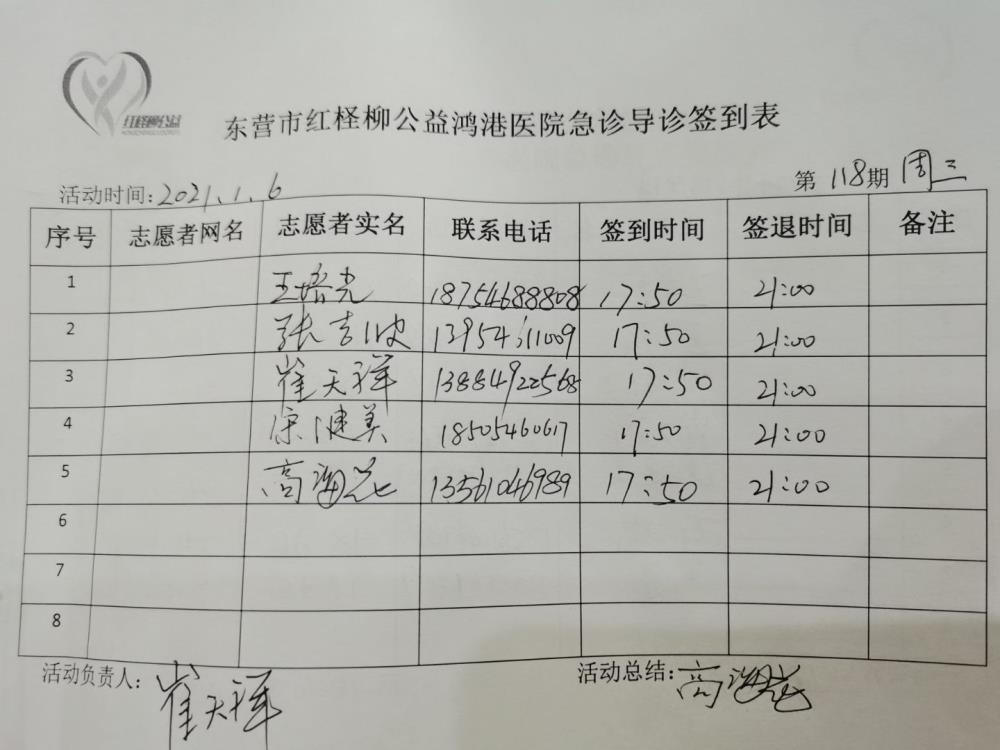 红柽柳公益
东营市红柽柳公益鸿港医院急诊导诊签到表
活动时间:2021.1.6 第 118期 周三
序号 志愿者网名 志愿者实名 联系电话 签到时间 签退时间 备注
1 王培光 18754688808 17:50 21:00
2 张吉波 13954611009 17:50 21:00
3 崔天祥 13884922568 17:50 21:00
4 宋健美 18505460617 17:50 21:00
5 高海花 13561046989 17:50 21:00
6
7
8
活动负责人: 崔天祥 活动总结: 高海花